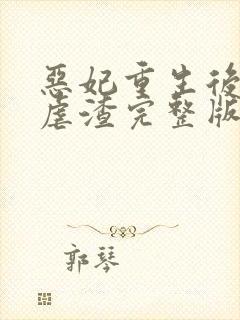 惡妃重生後
虐渣完整版
郭琴